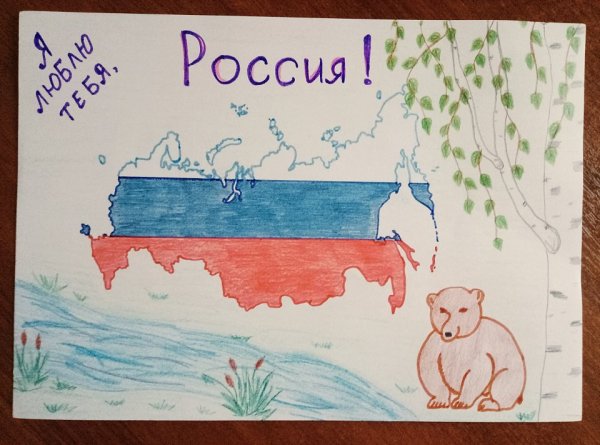 Я
ЛЮБЛЮ
ТЕБЯ,
РОССИЯ!